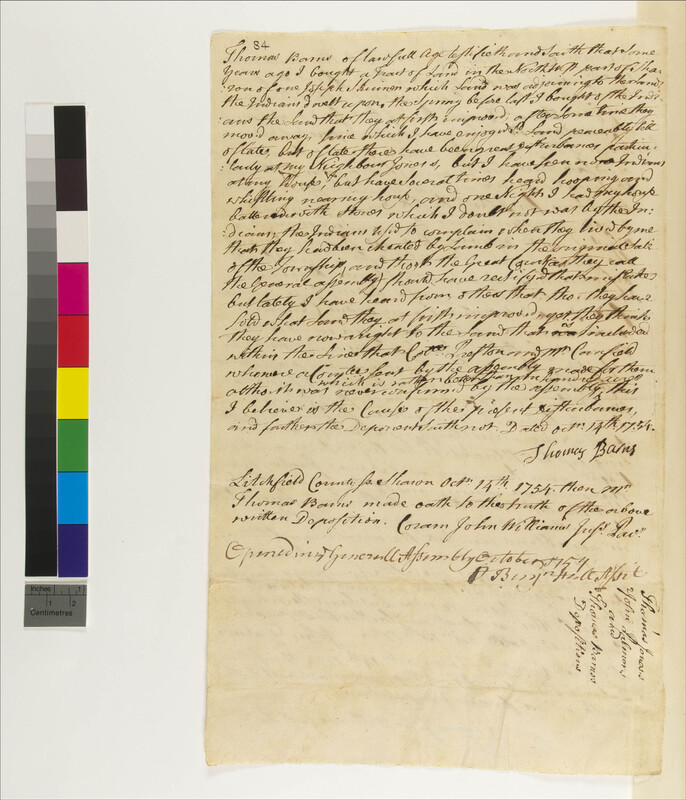 84
Thomas Barns of lawfull Age testifieth and Saith that Some
Years ago I bought a Tract of Land in the Northwest part of Sha-
ron of one Joseph Skinner which Land was adjoining to the Land
the Indians dwelt upon, the Spring before last I bought of the Indi-
ans the Land that they at first improved, after Some time they
moved away, Since which I have enjoyed Land peaceably till
of late, but of late there have been great disturbances particu-
-larly at my Neighbour Joness, but I have Seen no Indians
at my House, but have Several times heard hooping and
whistling near my house, and one Night I had my house
battered with Stones which I doubt not was by the In-
dians, the Indians used to complain when they lived by me
that they had been cheated by Lamb in the original Sale
of the Township, and that the Great Court as they call
the General assembly Should have rectifyd that mistake
but lately I have heard from others that tho they have
Sold what Land they at first improved yet they think
they have now a right to the Land included
within the Lines that Preston and Mr Canfield
who were a Comtee Sent by the assembly made for them
which is rather better
altho it was never confirmed by the assembly, this
I believe is the Cause of the present disturbances,
and farther the Deponent Saith not. Dated octr. 14th. 1754.
Thomas Barns
Litchfield County Ss Sharon Octr. 14th 1754. then Mr
Thomas Barns made oath to the truth of the above
written Deposition. Coram John Williams Just. Pac.
Opened in ye Generall Assembly October 1754
Thomas Jones
John Palmer
and
Thomas Barnes
Depositions
Inches
1
1
2
Centimetres